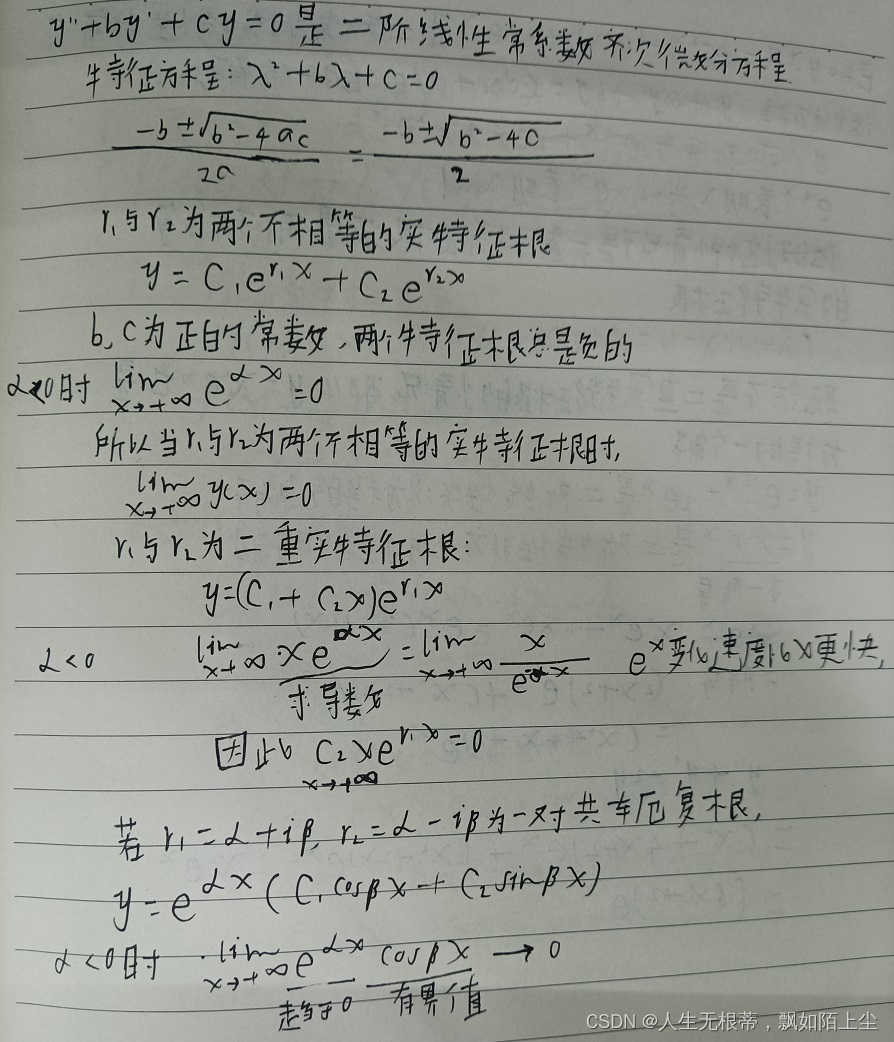 y''+by'+cy=0是二阶线性常系数齐次微分方程.
特征方程:λ²+bλ+c=0
(-b±√(b²-4ac))/2a = (-b±√(b²-4c))/2
r₁与r₂为两个不相等的实特征根
y=C₁e^(r₁x)+C₂e^(r₂x)
b,c为正的常数,两个特征根总是负的
α<0时 lim x→+∞ e^(αx)=0
所以当r₁与r₂为两个不相等的实特征根时,
lim x→+∞ y(x)=0
r₁与r₂为二重实特征根:
y=(C₁+C₂x)e^(r₁x)
α<0 lim x→+∞ xe^(αx)=lim x→+∞ x/e^(-αx) e^x变化速度比x更快,
求导数
因此 C₂xe^(r₁x)=0
x→+∞
若r₁=α+iβ,r₂=α-iβ为一对共轭复根,
y=e^(αx)(C₁cosβx+C₂sinβx)
α<0时 lim x→+∞ e^(αx) cosβx→0
趋于0 有界值
CSDN @人生无根蒂，飘如陌上尘